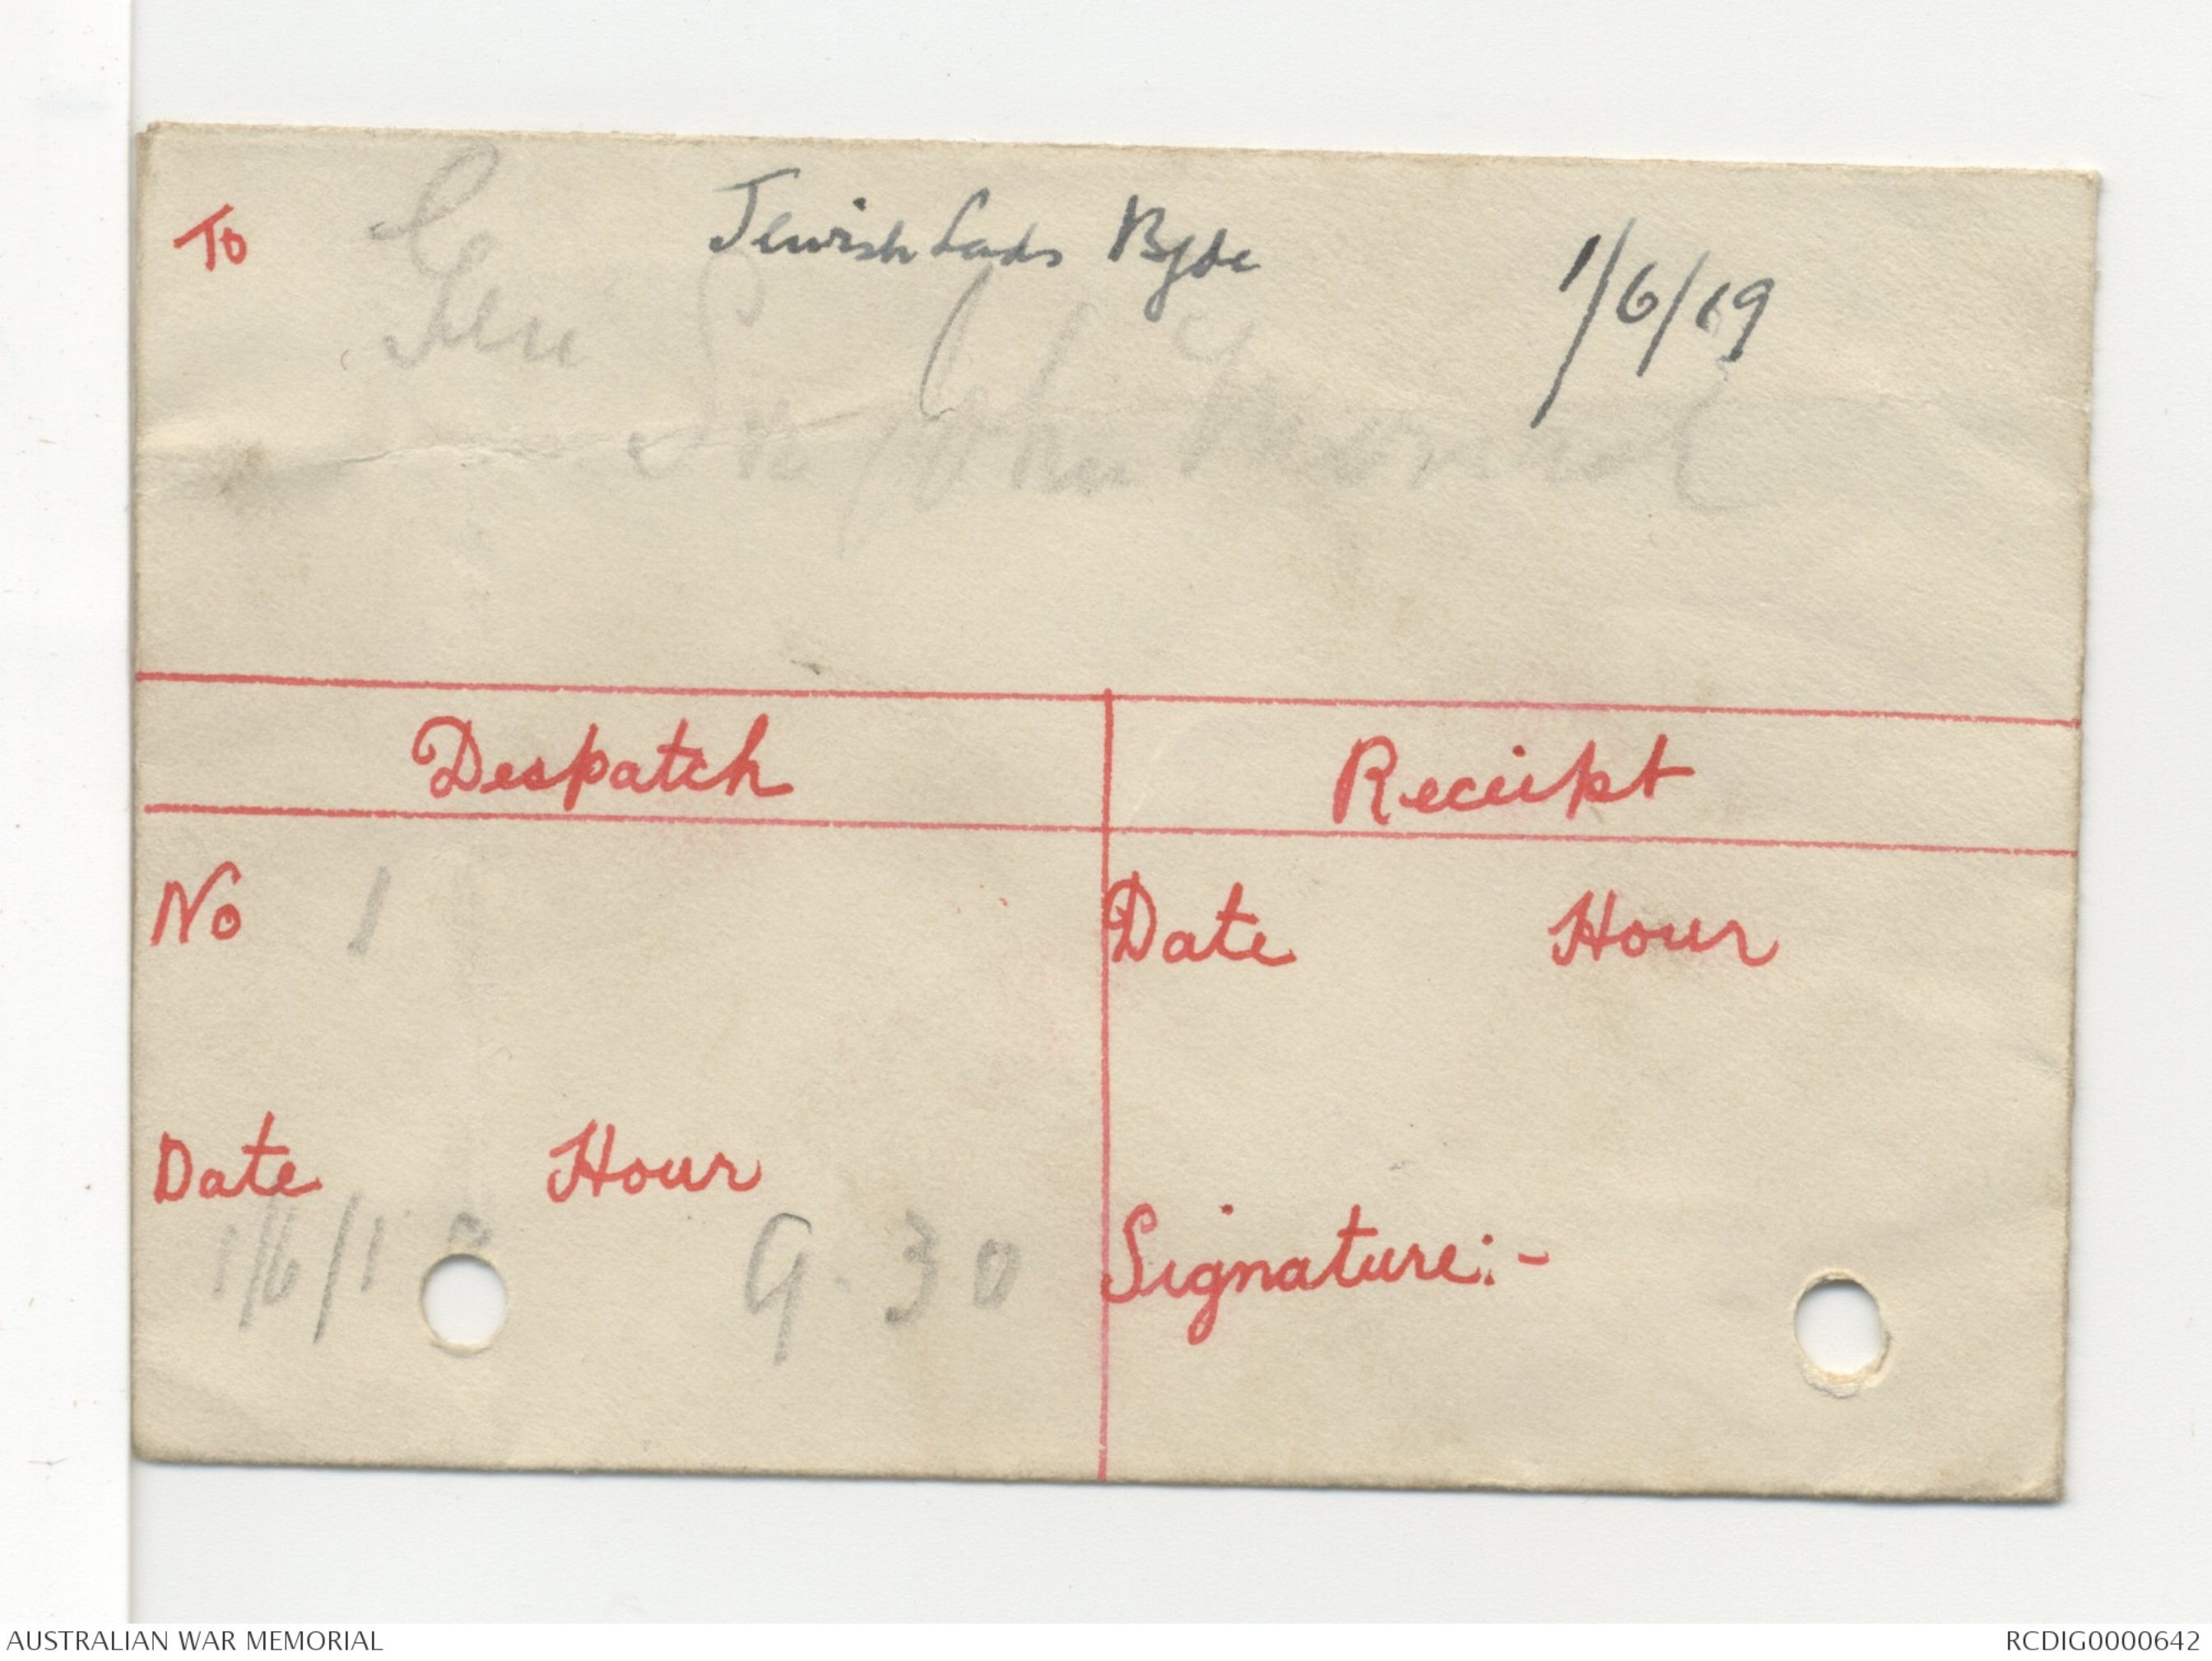 To Jewish Lads Bgde 1/6/19
Gen
Sir John Monash
Despatch Receipt
No 1 Date Hour
Date Hour
Signature:-
1/6/19 9.30
AUSTRALIAN WAR MEMORIAL RCDIG0000642